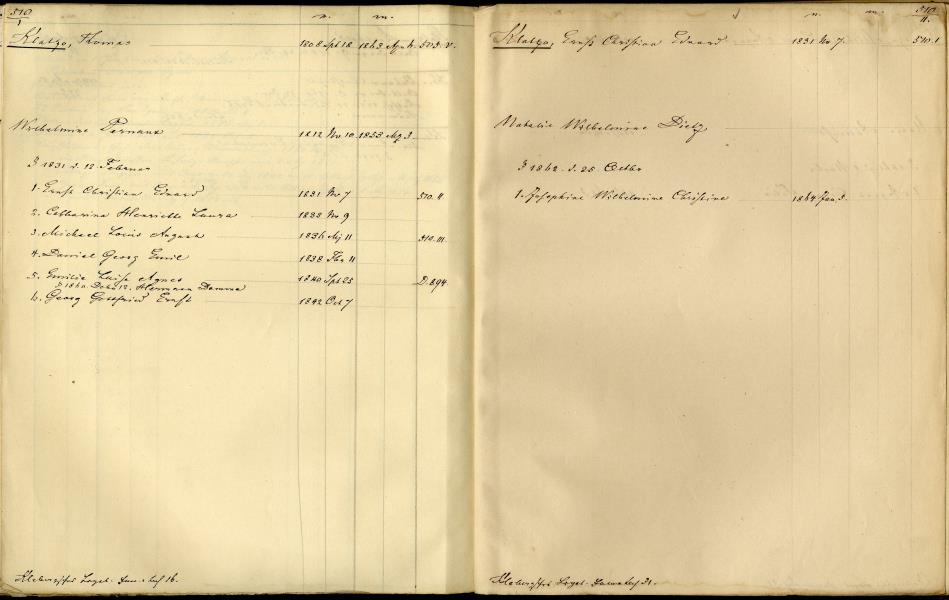 510
I
n. m.
Klatzo, Thomas 1808 Spt 18 1863 Apr 505. V.
Wilhelmine Pernaux 1812 Nv 10 1853 Mz 3
1831 d. 12 Februar
1. Ernst Christian Eduard 1831 Nv 7 510. II
2. Catharina Henriette Laura 1833 Nv 9
3. Michael Louis August 1836 Mj 11 510. III.
4. Daniel Georg Emil 1838 Fbr 11
5. Emilie Luise Agnes 1840 Spt 25 D. 894.
1860. 12. Hermann Damme
6. Georg Gottfried Ernst 1842 Oct 7
16.
510
II.
n. m.
Klatzo, Ernst Christian Eduard 1831 Nv 7. 510. I
Natalie Wilhelmine Dietz
1862. d. 25 Octbr
1. Josephine Wilhelmine Christine 1864 Jan. 3.
31.